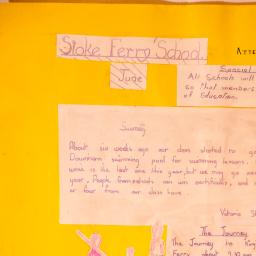 Stoke Ferry School.
June
Special
All Schools will
so that members
of Education.
Swimming
About six weeks ago our class started to go
Downham swimming pool for swimming lessons.
week is the last one this year, but we may go next
year. People from schools can win certificates, and
or four from our class have
Victoria
The Journey
The Journey to King
Ferry about 9.10 am